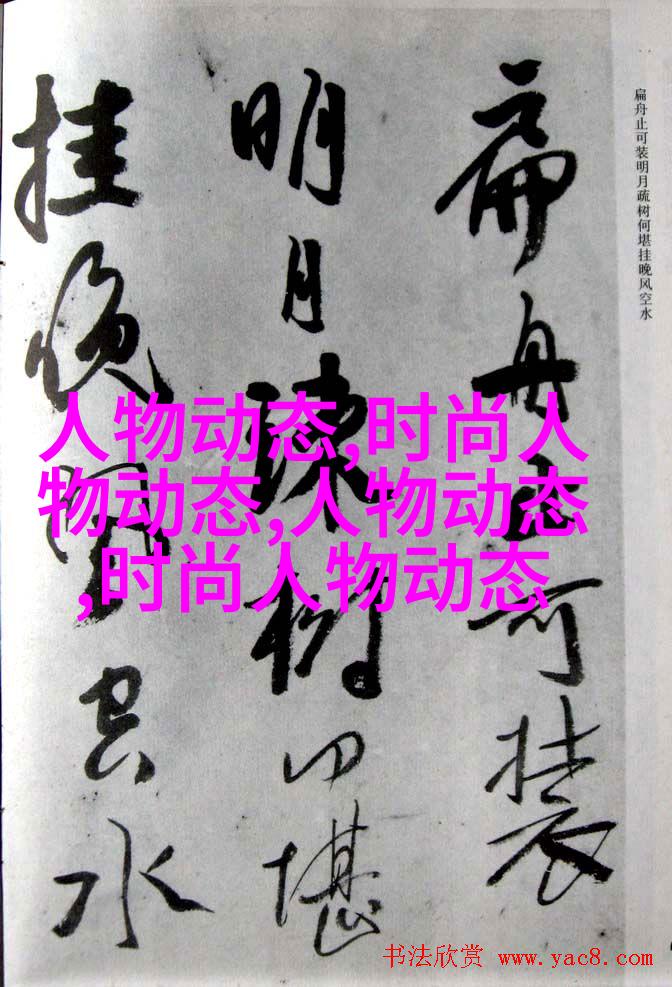 扁舟止可装
明月疏树何堪
挂晚风空水
扁舟止可装明月疏树何堪挂晚风空水
人物动态,时尚人
物动态,人物动态
,时尚人物动态
书法欣赏 www.yac8.com